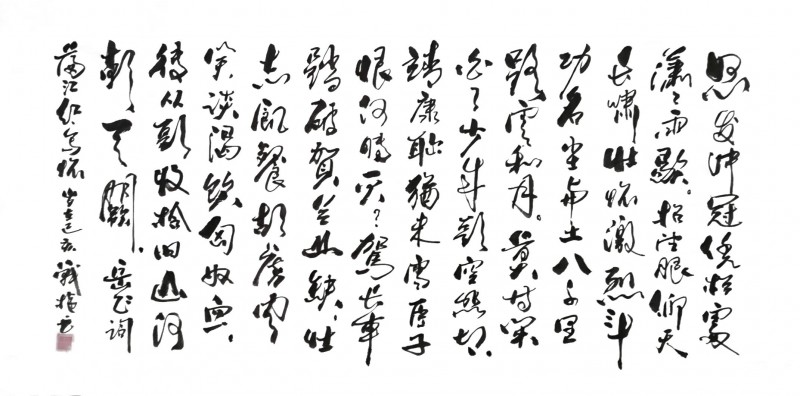 怒发冲冠凭栏處
瀟瀟雨歇。抬望眼仰天
长嘯壮怀激烈卅
功名尘与土八千里
路雲和月。莫等闲
白了少年头空悲切.
靖康耻猶未雪臣子
恨何时灭?駕长车
踏破賀兰山缺.壮
志飢餐胡虏肉
笑谈渴饮匈奴血.
待从头收拾旧山河
朝天闕.岳飞词
满江红写怀 岁在己亥